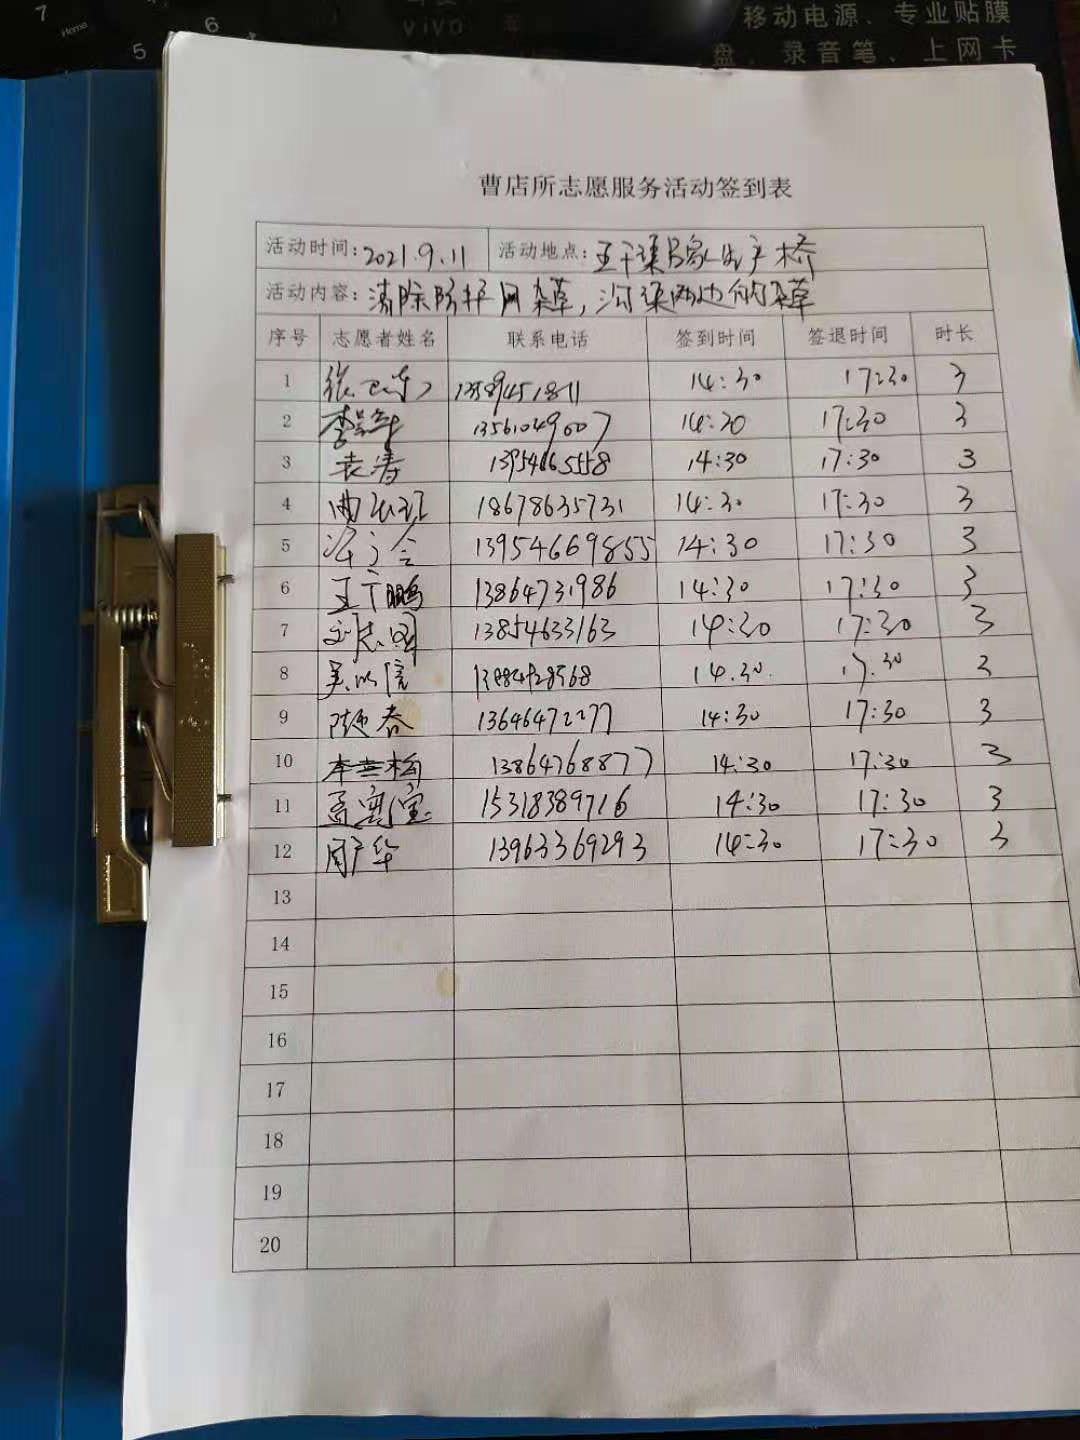 7
Home
6
5
vivo
移动电源、专业贴膜
盘、录音笔、上网卡
曹店所志愿服务活动签到表
活动时间:2021.9.11 活动地点:五干渠吕家生产桥
活动内容:清除防护网杂草,沟渠两边的杂草
序号 志愿者姓名 联系电话 签到时间 签退时间 时长
1 14:30 17:30 3
2 14:30 17:30 3
3 袁涛 14:30 17:30 3
4 18678635731 14:30 17:30 3
5 13954669855 14:30 17:30 3
6 王广鹏 13864731986 14:30 17:30 3
7 13854633163 14:30 17:30 3
8 14.30. 17.30 3
9 陆延春 13646472277 14:30 17:30 3
10 13864768877 14:30 17:30 3
11 15318389716 14:30 17:30 3
12 周广华 13963369293 14:30 17:30 3
13
14
15
16
17
18
19
20